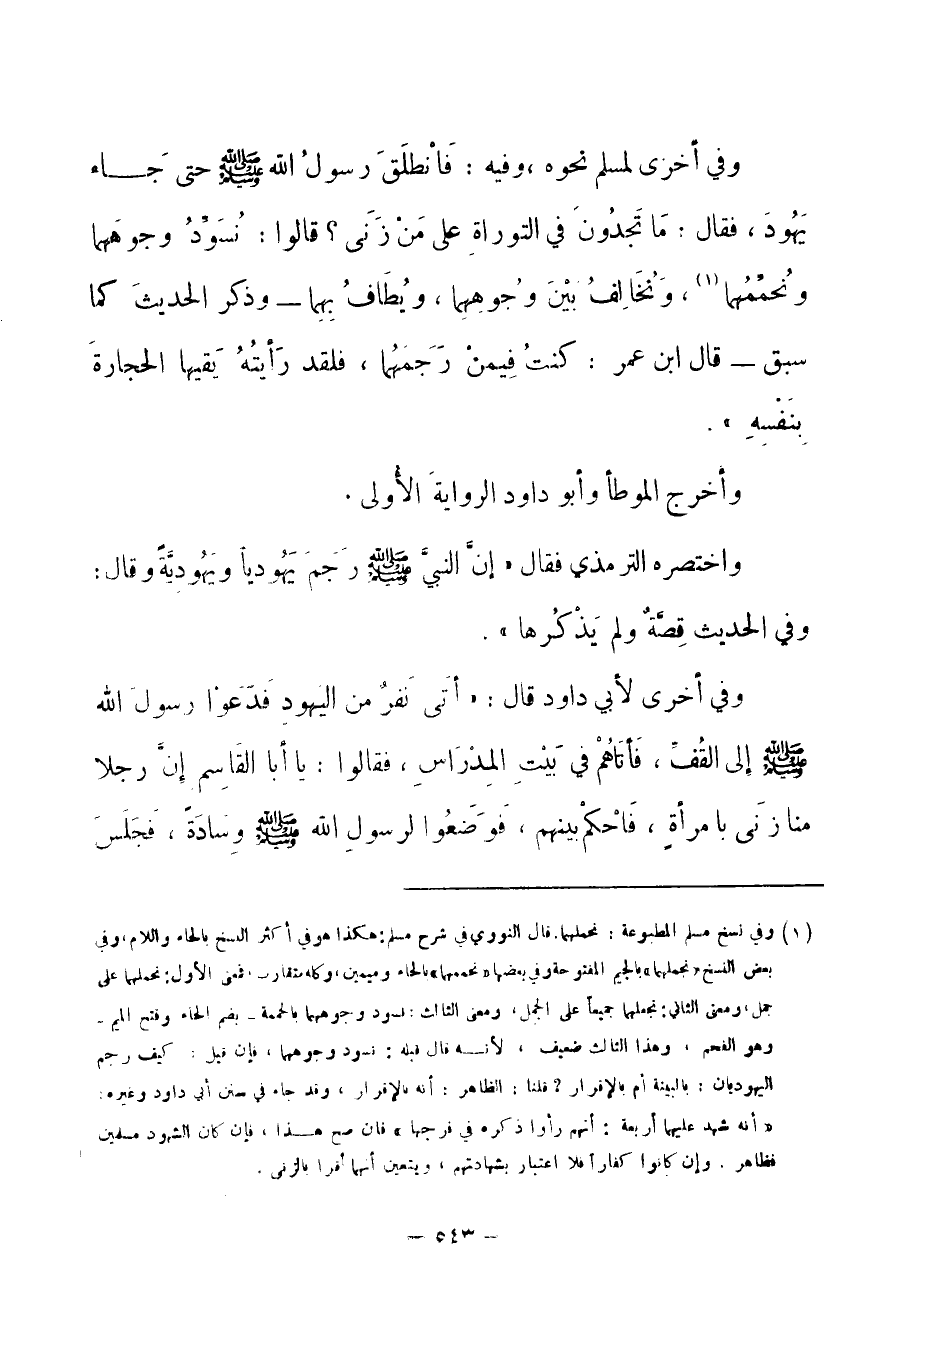 وفي أخرى لمسلم نحوه ، وفيه : فَانْطَلَقَ رسولُ الله ﷺ حتى جَـــاء
يَهُودَ ، فقال : مَا تَجِدُونَ في التوراةِ على مَنْ زَنَى ؟ قالوا : نُسَوِّدُ وجوهَهما
ونُحَمِّمُهما (١) ، وَنُخَالِفُ بَيْنَ وُجوهِهِما ، ويُطَافُ بِهِما ــ وذكر الحديثَ كما
سبق ــ قال ابن عمر : كنتُ فِيمنْ رَجَمَهُما ، فلقد رَأَيتُهُ يَقيها الحجارةَ
بِنَفْسِهِ » .
وأخرج الموطأ وأبو داود الروايةَ الأُولى .
واختصره الترمذي فقال « إنَّ النبيَّ ﷺ رَجَمَ يَهُودياً ويَهُوديَّةً وقال :
وفي الحديث قِصَّةٌ ولم يَذْكُرها » .
وفي أخرى لأبي داود قال : « أَتى نَفرٌ من اليهودِ فَدَعَوْا رسولَ الله
ﷺ إلى القُفِّ ، فَأَتاهُمْ في بَيْتِ المِدْرَاسِ ، فقالوا : يا أبا القَاسِم إنَّ رجلا
منا زَنَى بامرأةٍ ، فَاحْكُمْ بينهم ، فَوَضَعُوا لرسولِ الله ﷺ وِسَادَةً ، فَجَلَسَ
(١) وفي نسخ مسلم المطبوعة : نحملهما . قال النووي في شرح مسلم : هكذا هو في أكثر النسخ بالحاء واللام ، وفي
بعض النسخ « نجملهما » بالجيم المفتوحة وفي بعضها « نحممهما » بالحاء وميمين ، وكله متقارب ، فمعنى الأول : نحملهما على
جمل ، ومعنى الثاني : نجعلهما جميعاً على الجمل ، ومعنى الثالث : نسود وجوههما بالحممة ـ بضم الحاء وفتح الميم ـ
وهو الفحم ، وهذا الثالث ضعيف ، لأنـــه قال قبله : نسود وجوههما ، فإن قيل : كيف رجم
اليهوديان : بالبينة أم بالإقرار ? قلنا : الظاهر : أنه بالإقرار ، وقد جاء في سنن أبي داود وغيره :
« أنه شهد عليهما أربعة : أنهم رأوا ذكره في فرجها » فان صح هـــذا ، فإن كان الشهود مسلمين
فظاهر . وإن كانوا كفاراً فلا اعتبار بشهادتهم ، ويتعين أنهما أقرا بالزنى .
– ٥٤٣ –